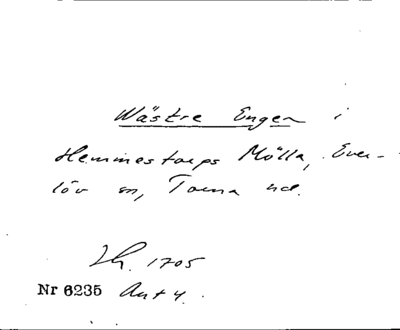 Wästre Engen i
Hemmestorps Mölla, Ever-
löv sn, Torna hd.
Lh. 1705
Nr 6235 Akt 4.